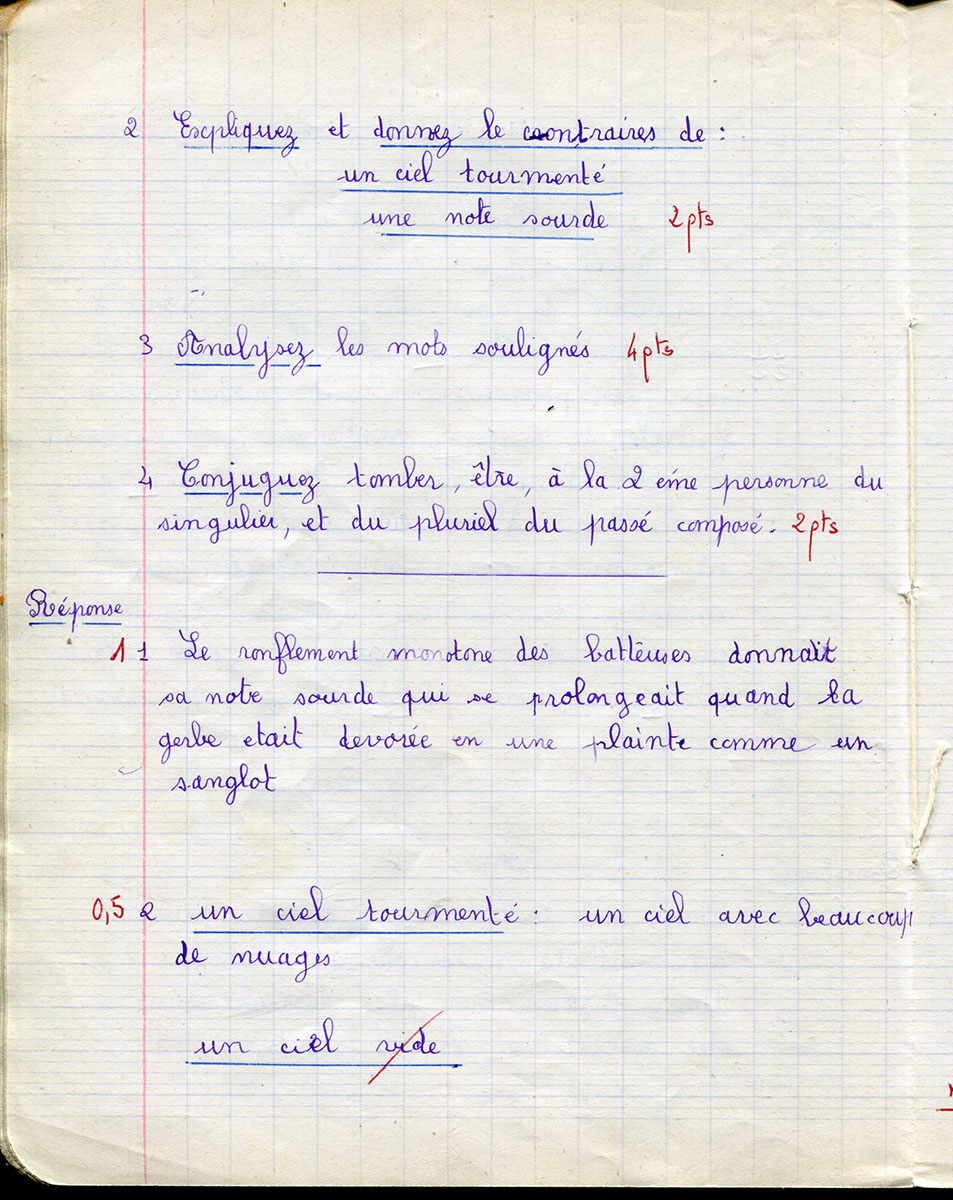 2 Expliquez et donnez le contraires de :
un ciel tourmenté
une note sourde 2pts
3 Analysez les mots soulignés 4pts
4 Conjuguez tomber, être, à la 2 éme personne du
singulier, et du pluriel du passé composé. 2pts
Réponse
1 1 Le ronflement monotone des batteuses donnait
sa note sourde qui se prolongeait quand la
gerbe etait devorée en une plainte comme un
sanglot
0,5 2 un ciel tourmenté : un ciel avec beaucoup
de nuages
un ciel vide